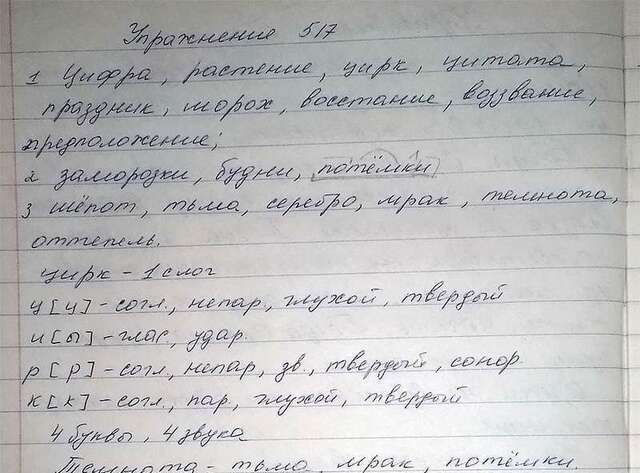 Упражнение 517
1 Цифра, растение, цирк, цитата,
праздник, шорох, восстание, воззвание,
предположение;
2 заморозки, будни, потёмки
3 шёпот, тьма, серебро, мрак, темнота,
оттепель.
цирк - 1 слог
ц [ц] - согл., непар., глухой, твердый
и [ы] - глас., удар.
р [р] - согл., непар., зв., твердый, сонор.
к [к] - согл., пар., глухой, твердый
4 буквы, 4 звука
Темнота - тьма, мрак, потёмки.